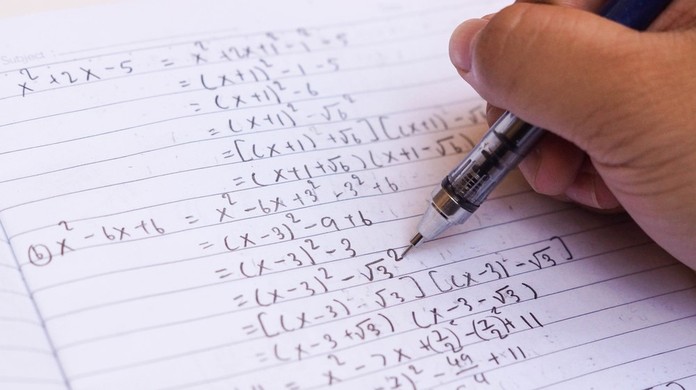 Subject
x² + 2x - 5 = x² + 2x + 1² - 1² - 5
= (x+1)² - 1 - 5
= (x+1)² - 6
= (x+1)² - √6²
= [(x+1)² + √6] [(x+1)² - √6
= (x+1+√6) (x+1-√6)
(b) x² - 6x + 6 = x² - 6x + 3² - 3² + 6
= (x-3)² - 9 + 6
= (x-3)² - 3
= (x-3)² - √3²
= [(x-3)² - √3] [(x-3)² - √3]
= (x-3+√3) (x-3-√3)
= x² - 7x + (7/2)² - (7/2)² + 11
)² - 49/4 + 11